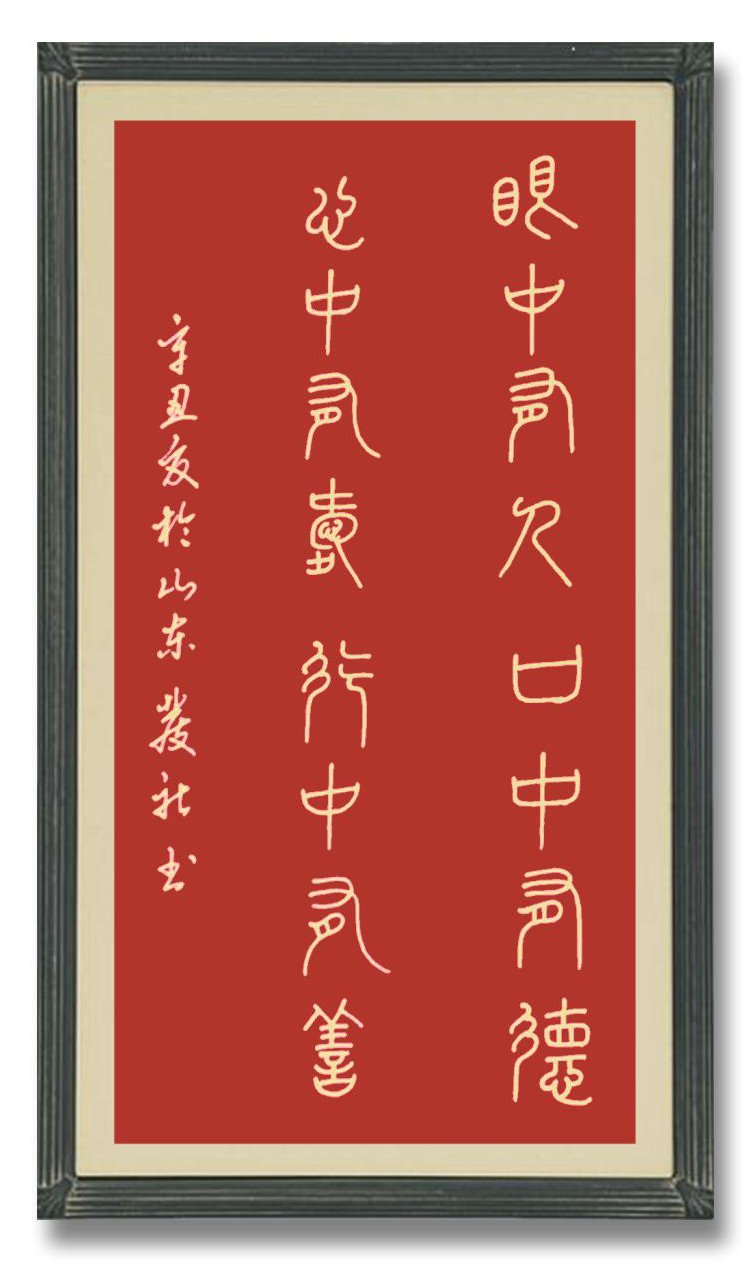 眼中有人口中有德
心中有愛行中有善
辛丑夏於山东發社书